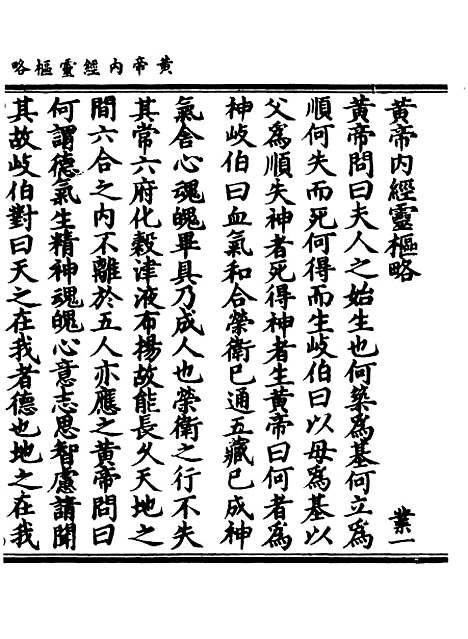 黃帝內經靈樞略
黃帝內經靈樞略 業一
黃帝問曰夫人之始生也何築為基何立為
順何失而死何得而生岐伯曰以母為基以
父為順失神者死得神者生黃帝曰何者為
神岐伯曰血氣和合榮衛已通五藏已成神
氣舍心魂魄畢具乃成人也榮衛之行不失
其常六府化穀津液布揚故能長久天地之
間六合之內不離於五人亦應之黃帝問曰
何謂德氣生精神魂魄心意志思智慮請聞
其故岐伯對曰天之在我者德也地之在我